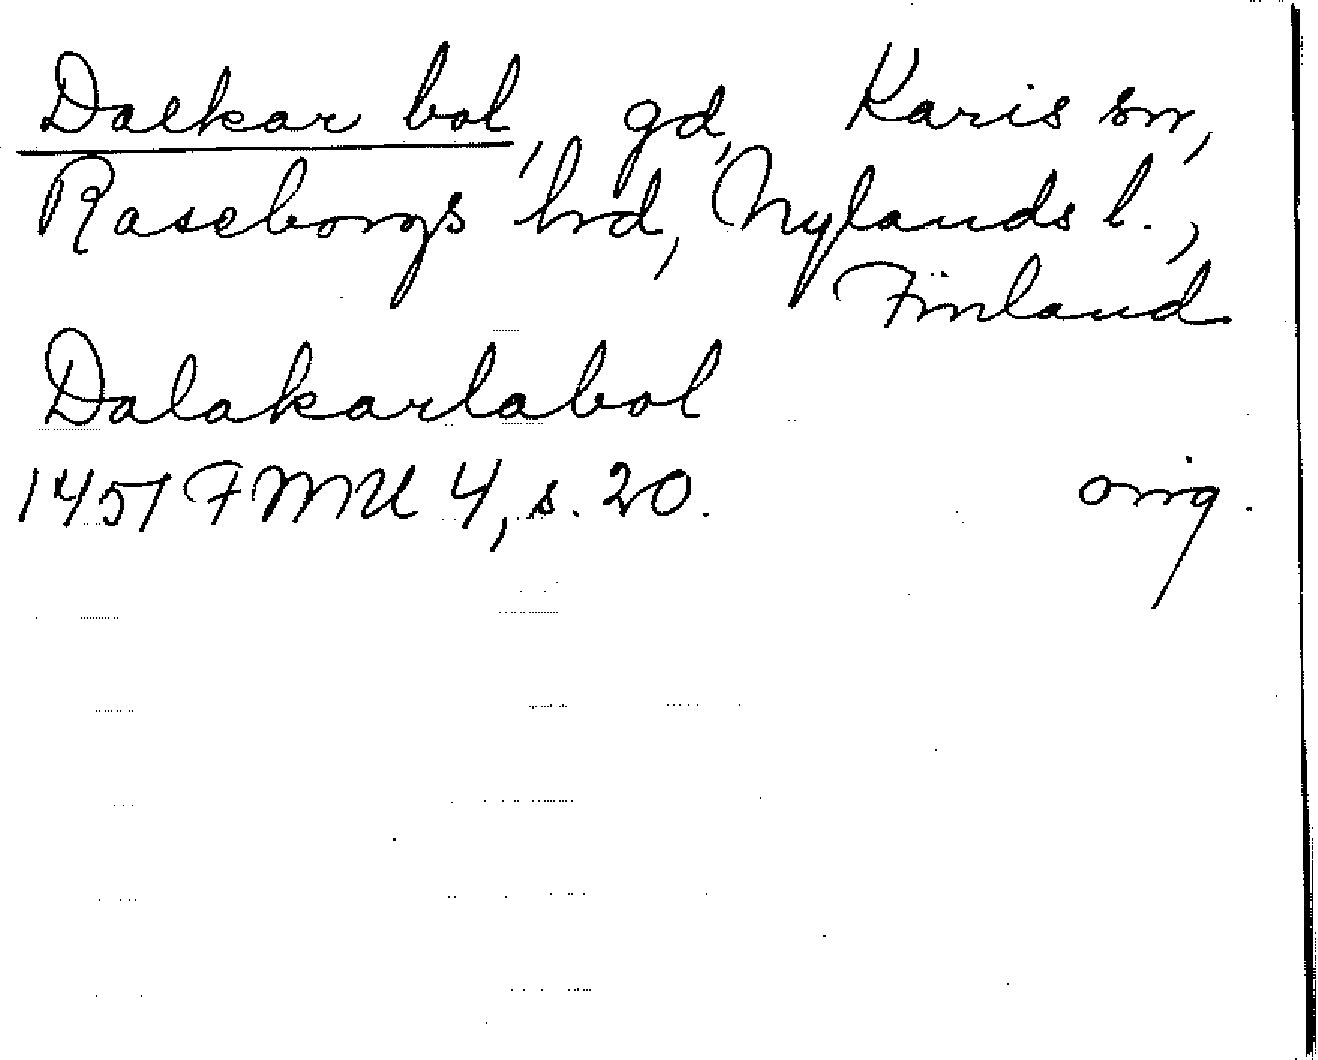 Dalkarbol, gd, Karis sn,
Raseborgs hrd, Nylands l.,
Finland
Dalakarlabol
1451 FMU 4, s. 20. orig.